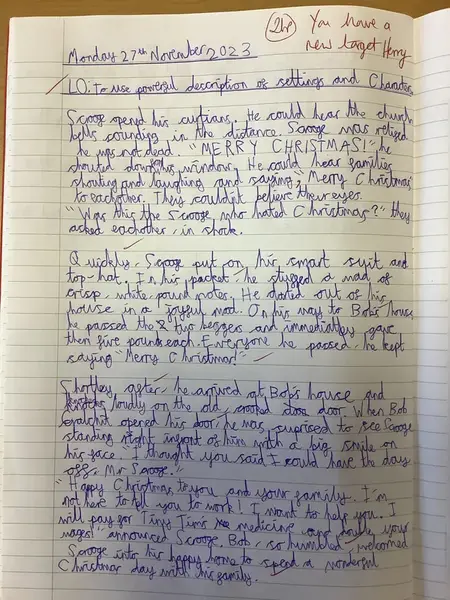 2hp You have a
new target Henry
Monday 27th November 2023
LO: To use powerful description of settings and Charaters
Scrooge opened his curtians. He could hear the church
bells sounding in the distance. Scrooge was
he was not dead. "MERRY CHRISTMAS!" he
shouted down his window. He could hear families
shouting and laughing and saying "Merry Christmas"
to eachother. They couldn't believe their eyes.
"Was this the Scrooge who hated Christmas?" they
asked eachother, in shock.
Quickly, Scrooge put on his smart suit and
top-hat. In his pocket, he stuffed a wad of
crisp, white pound notes. He darted out of his
house in a joyful mood. On his way to Bob's house
he passed the 2 two beggers and immediatley gave
them five pound each. Everyone he passed, he kept
saying "Merry Christmas!"
Shortley after, he arrived at Bob's house and
knocks loudly on the old, door. When Bob
Cratchit opened his door, he was suprised to see Scrooge
standing right infront of him with a big smile on
his face. "I thought you said I could have the day
off, Mr Scrooge."
"Happy Christmas to you and your family. I'm
not here to tell you to work! I want to help you. I
will pay for Tiny Tim's medicine and your
wages!" announced Scrooge. Bob, so humbled, welcomed
Scrooge into his happy home to spend a wonderful
Christmas day with his family.